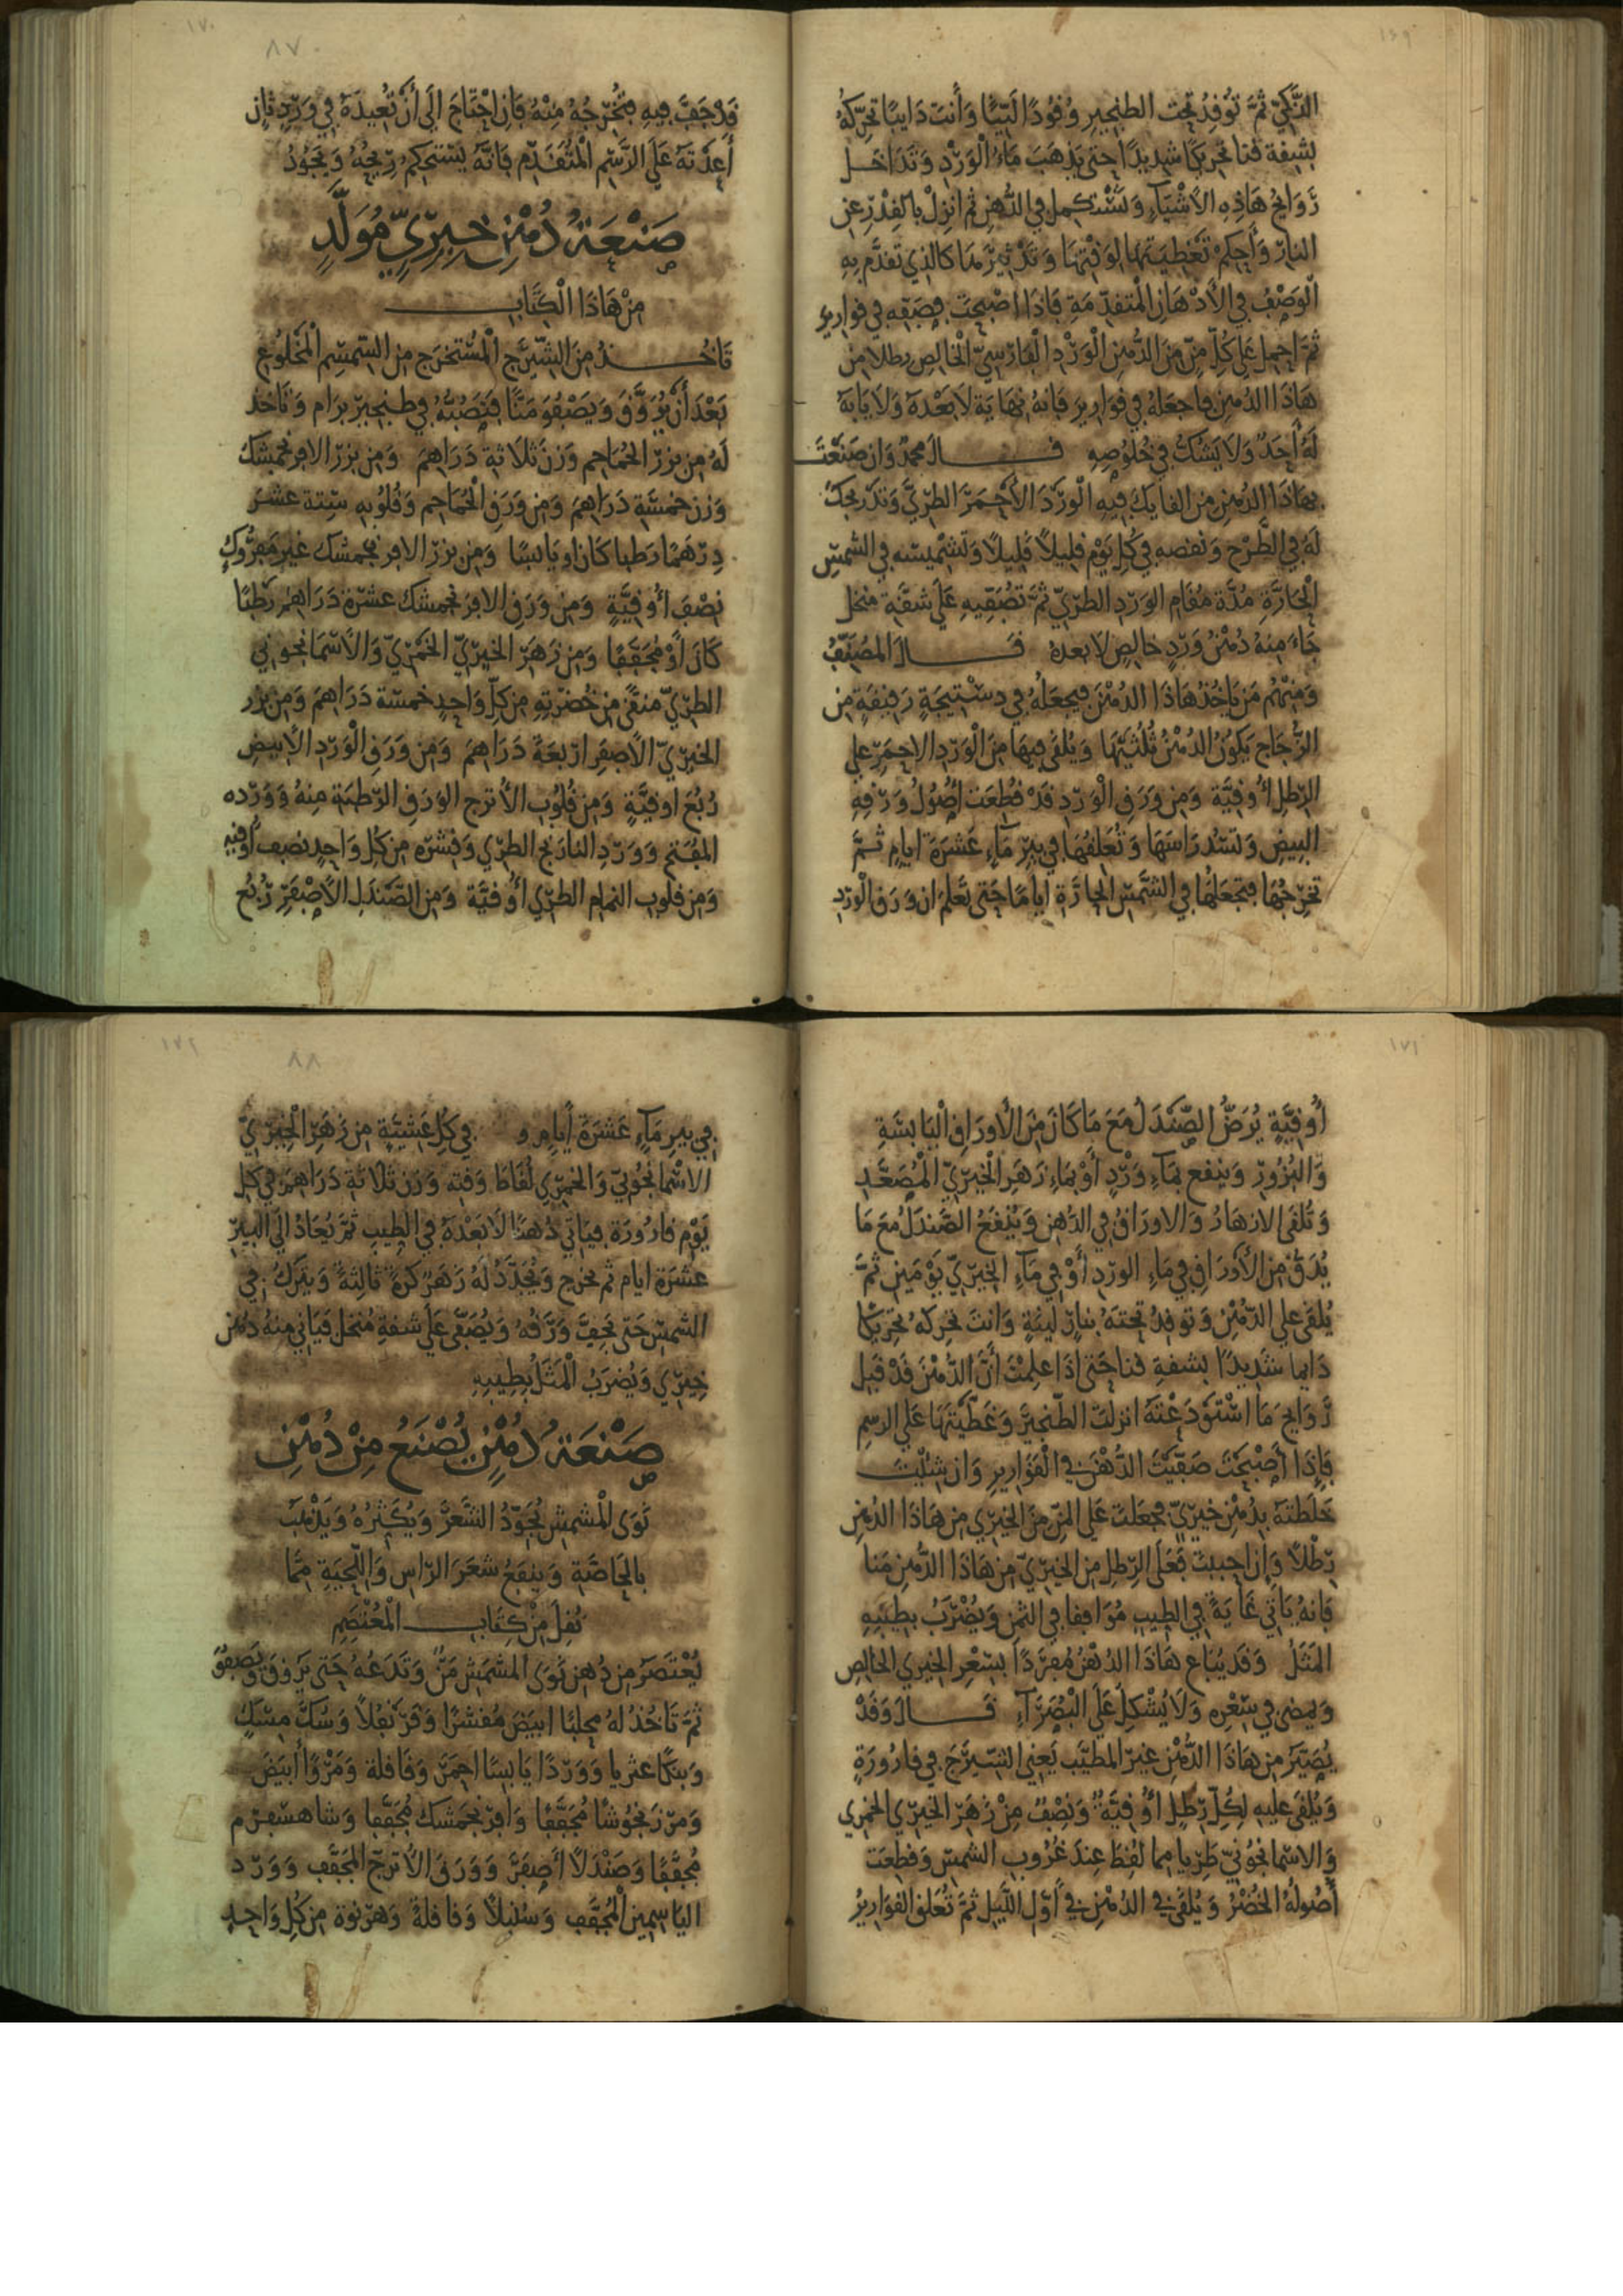 ١٦٩
الذكي ثم توقد تحت الطنجير وقودا لينا وأنت دايبا تحركه
بشقة قنا تحريكا شديدا حتى يذهب ماء الورد وتداخل
روايح هاذه الأشياء وتستكمل في الدهن ثم انزل بالقدر عن
النار وأحكم تغطيتها لوقتها وتدثيرها كالذي تقدم به
الوصف في الأدهان المتقدمة فإذا اصبحت فصفه في قوارير
ثم احمل على كل من من الدهن الورد الفارسي الخالص رطلا من
هاذا الدهن واجعله في قوارير فإنه نهاية لا بعده ولا يابه
له أحد ولا يشك في خلوصه قال محمد وان صنعت
بهاذا الدهن من الفايك فيه الورد الأحمر الطري وتدريجك
له في الطرح ونقصه في كل يوم قليلا قليلا وتشميسه في الشمس
الحارة مدة مقام الورد الطري ثم تصفيه على شقة منخل
جاء منه دهن ورد خالص لا بعده قال المصنف
ومنهم من ياخذ هاذا الدهن فيجعله في دستيجة رقيقة من
الزجاج يكون الدهن ثلثيها ويلقى فيها من الورد الاحمر على
الرطل أوقية ومن ورق الورد قد قطعت اصول ورقه
البيض وتسد راسها وتعلقها في بير ماء عشرة ايام ثم
تخرجها فتجعلها في الشمس الحارة اياما حتى تعلم ان ورق الورد
١٧٠
٨٧
قد جف فيه فتخرجه منه فإن احتاج الى أن تعيده في ورد ثان
أعدته على الرسم المتقدم فانه يستحكم ريحه ويجود
صنعة دهن خيري مولد
من هاذا الكتاب
تاخذ من الشيرج المستخرج من السمسم المخلوع
بعد أن يروق ويصفو منا فتصبه في طنجير برام وتاخذ
له من بزر الحماحم وزن ثلاثة دراهم ومن بزر الافرنجمشك
وزن خمسة دراهم ومن ورق الحماحم وقلوبه ستة عشر
درهما رطبا كان او يابسا ومن بزر الافرنجمشك غير مفروك
نصف أوقية ومن ورق الافرنجمشك عشرة دراهم رطبا
كان أو مجففا ومن زهر الخيري الخمري والاسمانجوني
الطري منقى من خضرته من كل واحد خمسة دراهم ومن بزر
الخيري الأصفر اربعة دراهم ومن ورق الورد الأبيض
ربع اوقية ومن قلوب الأترج الورق الرطبة منه وورده
المفتح وورد النارنج الطري وقشره من كل واحد نصف أوقية
ومن قلوب النمام الطري أوقية ومن الصندل الأصفر ربع
١٧١
أوقية يرض الصندل مع ما كان من الأوراق اليابسة
والبزور وينقع بماء ورد أو بماء زهر الخيري المصعد
وتلقى الازهار والاوراق في الدهن وينقع الصندل مع ما
يدق من الأوراق في ماء الورد أو في ماء الخيري يومين ثم
يلقى على الدهن وتوقد تحته بنار لينة وانت تحركه تحريكا
دايما شديدا بشقة قنا حتى اذا علمت أن الدهن قد قبل
روايح ما استودعته انزلت الطنجير وغطيتها على الرسم
فإذا أصبحت صفيت الدهن في القوارير وان شئت
خلطته بدهن خيري فجعلت على المن من الخيري من هاذا الدهن
رطلا وإن احببت فعلى الرطل من الخيري من هاذا الدهن منا
فإنه ياتي غاية في الطيب موافقا في الثمن ويضرب بطيبه
المثل وقد يباع هاذا الدهن مفردا بسعر الخيري الخالص
ويمضى في سعره ولا يشكل على البصراء قال وقد
يصير من هاذا الدهن غير المطيب يعني الشيرج في قارورة
ويلقى عليه لكل رطل أوقية ونصف من زهر الخيري الخمري
والاسمانجوني طريا مما لقط عند غروب الشمس وقطعت
أصوله الخضر ويلقى في الدهن في أول الليل ثم تعلق القوارير
١٧٢
٨٨
في بير ماء عشرة أيام و في كل عشية من زهر الخيري
الاسمانجوني والخمري لقاط وقته وزن ثلاثة دراهم في كل
يوم قارورة فياتي دهنا لا بعده في الطيب ثم يعاد الى البير
عشرة ايام ثم يخرج ويجدد له زهر كرة ثالثة ويترك في
الشمس حتى يجف ورقه ويصفى على شقة منخل فياتي منه دهن
خيري ويضرب المثل بطيبه
صنعة دهن يصنع من دهن
نوى المشمش يجود الشعر ويكثره ويذهب
بالحاصة وينفع شعر الراس واللحية مما
نقل من كتاب المعتصم
يعتصر من دهن نوى المشمش من وتدعه حتى يروق ويصفو
ثم تاخذ له محلبا ابيض مقشرا وقرنفلا وسك مسك
وبنكا عثريا ووردا يابسا احمر وقاقلة ومروا أبيض
ومرزنجوشا مجففا وافرنجمشك مجففا وشاهسفرم
مجففا وصندلا أصفر وورق الأترج المجفف وورد
الياسمين المجفف وسنبلا وقاقلة وهرنوة من كل واحد